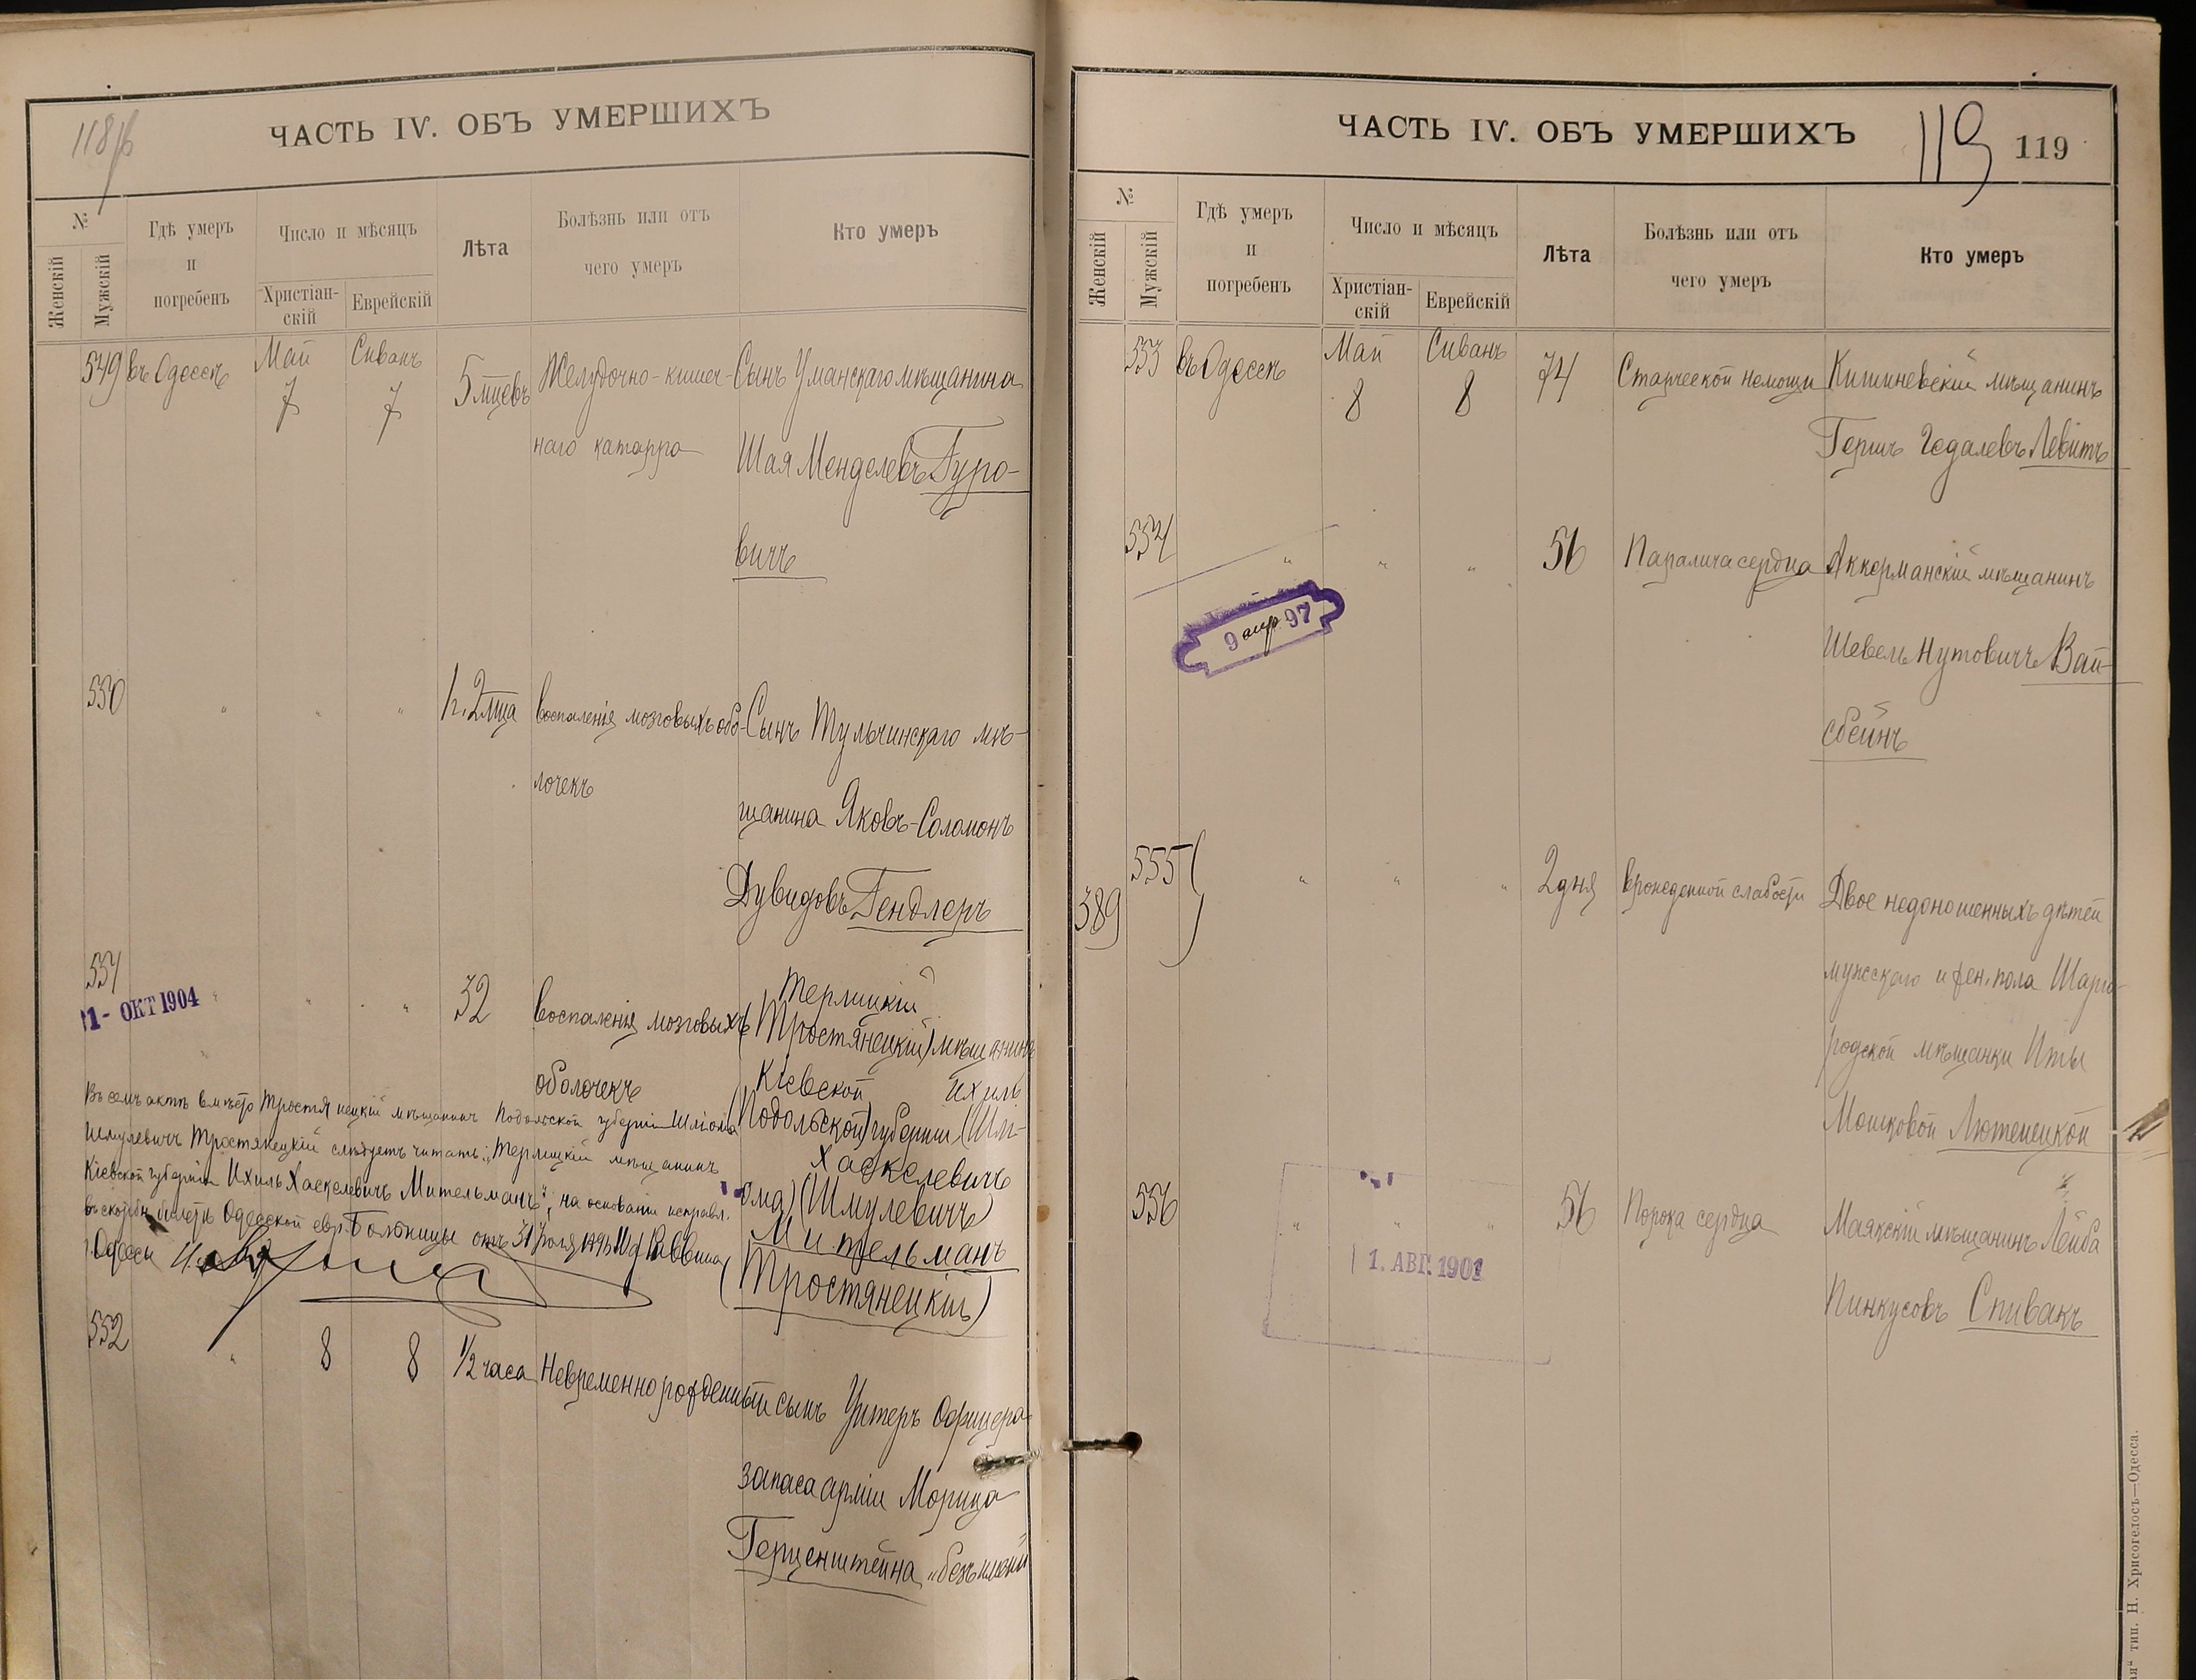 118/б
ЧАСТЬ IV. ОБЪ УМЕРШИХЪ
№
Женскій
Мужскій
Гдѣ умеръ
и
погребенъ
Число и мѣсяцъ
Христіан-
скій
Еврейскій
Лѣта
Болѣзнь или отъ
чего умеръ
Кто умеръ
549 въ Одессѣ Май 7 Сиванъ 7 5 мцевъ Желудочно-кишеч- Сынъ Уманскаго мѣщанина
наго катарра Шая Менделевъ Гуро-
вичъ
550 " " " 1 г. 2 мца воспаленія мозговыхъ обо- Сынъ Тульчинскаго мѣ-
лочекъ щанина Яковъ-Соломонъ
Дувидовъ Гендлеръ
551 " " " 32 воспаленія мозговыхъ Терлицкій
(Тростянецкій) мѣщанинъ
1 - ОКТ 1904
оболочекъ Кіевской Ихиль
(Подольской) губерніи (Шлі-
Хаскелевичъ
ома) (Шмулевичъ)
Мительманъ
(Тростянецкій)
Въ семъ актѣ вмѣсто Тростянецкій мѣщанинъ Подольской губерніи Шліома
Шмулевичъ Тростянецкій слѣдуетъ читать: „Терлицкій мѣщанинъ
Кіевской губерніи Ихиль Хаскелевичъ Мительманъ“, на основаніи исправл.
въ скорбн. билетѣ Одесской евр. Больницы отъ 31 Раввина
г. Одессы
552 " 8 8 1/2 часа Невременно рожденный сынъ Унтеръ Офицера
запаса арміи Морица
Герценштейна „безъ имени
ЧАСТЬ IV. ОБЪ УМЕРШИХЪ
119 119
№
Женскій
Мужскій
Гдѣ умеръ
и
погребенъ
Число и мѣсяцъ
Христіан-
скій
Еврейскій
Лѣта
Болѣзнь или отъ
чего умеръ
Кто умеръ
553 въ Одессѣ Май 8 Сиванъ 8 74 Старческой немощи Кишиневскій мѣщанинъ
Гершъ Гедалевъ Левитъ
554 " " " 56 Паралича сердца Аккерманскій мѣщанинъ
9 апр 97
Шевель Нутовичъ Вай-
сбейнъ
389 555 " " " 2 дня врожденной слабости Двое недоношенныхъ дѣтей
мужскаго и жен. пола Шарго-
родской мѣщанки Иты
Мошковой Лютенецкой
556 " " " 56 Порока сердца Маякскій мѣщанинъ Лейба
1. АВГ. 1901
Пинкусовъ Спивакъ
тип. Н. Хрисогелосъ—Одесса.